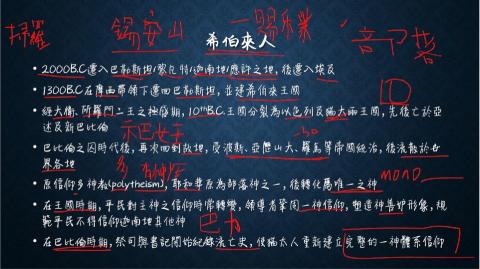 掃羅 錫安山 一賜樂業
希伯來人
• 2000BC遷入巴勒斯坦/黎凡特/迦南地/應許之地,後遷入埃及
• 1300BC在摩西帶領下遷回巴勒斯坦,並建希伯來王國
• 經大衛、所羅門二王之極盛期,10thBC王國分裂為以色列及猶大兩王國,先後亡於亞
述及新巴比倫
示巴女王
• 巴比倫之囚時代後,再次回到故地,受波斯、亞歷山大、羅馬等帝國統治,後流散於世
界各地
多
• 原信仰多神者(polytheism),耶和華原為部落神之一,後轉化為唯一之神
mono
• 在王國時期,平民對主神之信仰時常轉變,領導者鞏固一神信仰,塑造神善妒形象,規
範平民不得信仰迦南地其他神
巴力
• 在巴比倫時期,祭司與書記開始紀錄流亡史,使猶太人重新建立完整的一神體系信仰